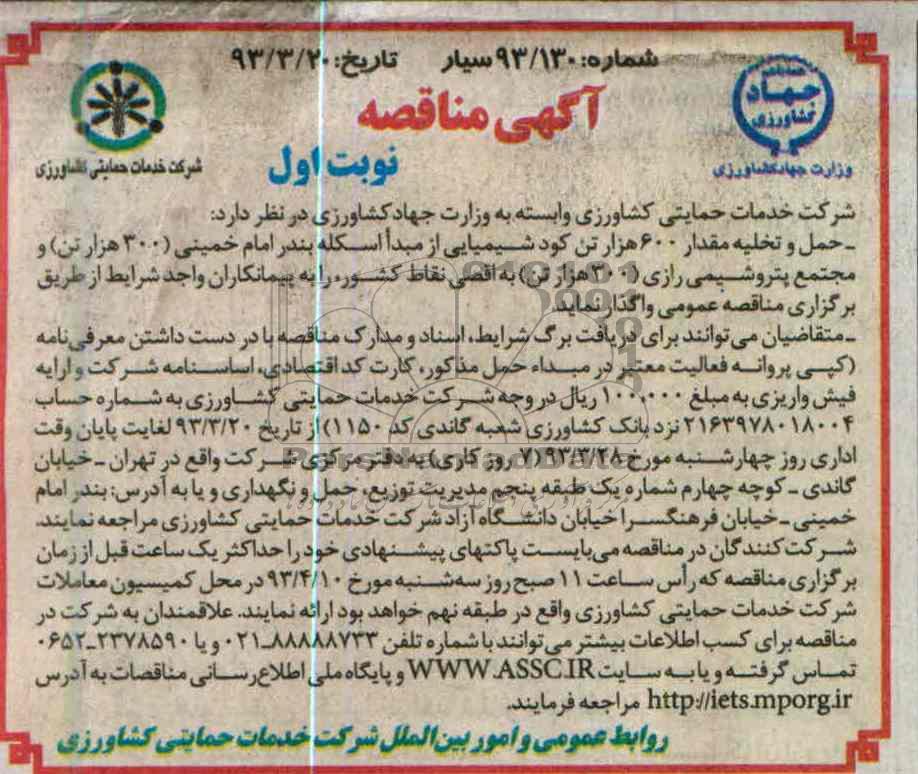 شماره: ۹۳/۱۳۰ سیار تاریخ: ۹۳/۳/۲۰
حمایتی جهاد کشاورزی
آگهی مناقصه
وزارت جهادکشاورزی
شرکت خدمات حمایتی کشاورزی
نوبت اول
شرکت خدمات حمایتی کشاورزی وابسته به وزارت جهادکشاورزی در نظر دارد:
ـ حمل و تخلیه مقدار ۶۰۰ هزار تن کود شیمیایی از مبدأ اسکله بندر امام خمینی (۳۰۰ هزار تن) و
مجتمع پتروشیمی رازی (۳۰۰ هزار تن) به اقصی نقاط کشور، را به پیمانکاران واجد شرایط از طریق
برگزاری مناقصه عمومی واگذار نماید.
ـ متقاضیان می‌توانند برای دریافت برگ شرایط، اسناد و مدارک مناقصه با در دست داشتن معرفی‌نامه
(کپی پروانه فعالیت معتبر در مبداء حمل مذکور، کارت کد اقتصادی، اساسنامه شرکت و ارایه
فیش واریزی به مبلغ ۱۰۰,۰۰۰ ریال در وجه شرکت خدمات حمایتی کشاورزی به شماره حساب
۲۱۶۳۹۷۸۰۱۸۰۰۴ نزد بانک کشاورزی شعبه گاندی کد ۱۱۵۰) از تاریخ ۹۳/۳/۲۰ لغایت پایان وقت
اداری روز چهارشنبه مورخ ۹۳/۳/۲۸ (۷ روز کاری) به دفتر مرکزی شرکت واقع در تهران ـ خیابان
گاندی ـ کوچه چهارم شماره یک طبقه پنجم مدیریت توزیع، حمل و نگهداری و یا به آدرس: بندر امام
خمینی ـ خیابان فرهنگسرا خیابان دانشگاه آزاد شرکت خدمات حمایتی کشاورزی مراجعه نمایند.
شرکت‌کنندگان در مناقصه می‌بایست پاکتهای پیشنهادی خود را حداکثر یک ساعت قبل از زمان
برگزاری مناقصه که رأس ساعت ۱۱ صبح روز سه‌شنبه مورخ ۹۳/۴/۱۰ در محل کمیسیون معاملات
شرکت خدمات حمایتی کشاورزی واقع در طبقه نهم خواهد بود ارائه نمایند. علاقمندان به شرکت در
مناقصه برای کسب اطلاعات بیشتر می‌توانند با شماره تلفن ۸۸۸۸۸۷۳۳ـ۰۲۱ و یا ۲۳۷۸۵۹۰ـ۰۶۵۲
تماس گرفته و یا به سایت WWW.ASSC.IR و پایگاه ملی اطلاع‌رسانی مناقصات به آدرس
http://iets.mporg.ir مراجعه فرمایند.
روابط عمومی و امور بین‌الملل شرکت خدمات حمایتی کشاورزی
ParsNamadData